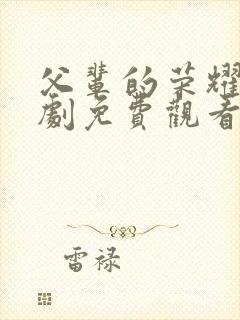 父輩的荣耀
劇免費觀看
雷禄